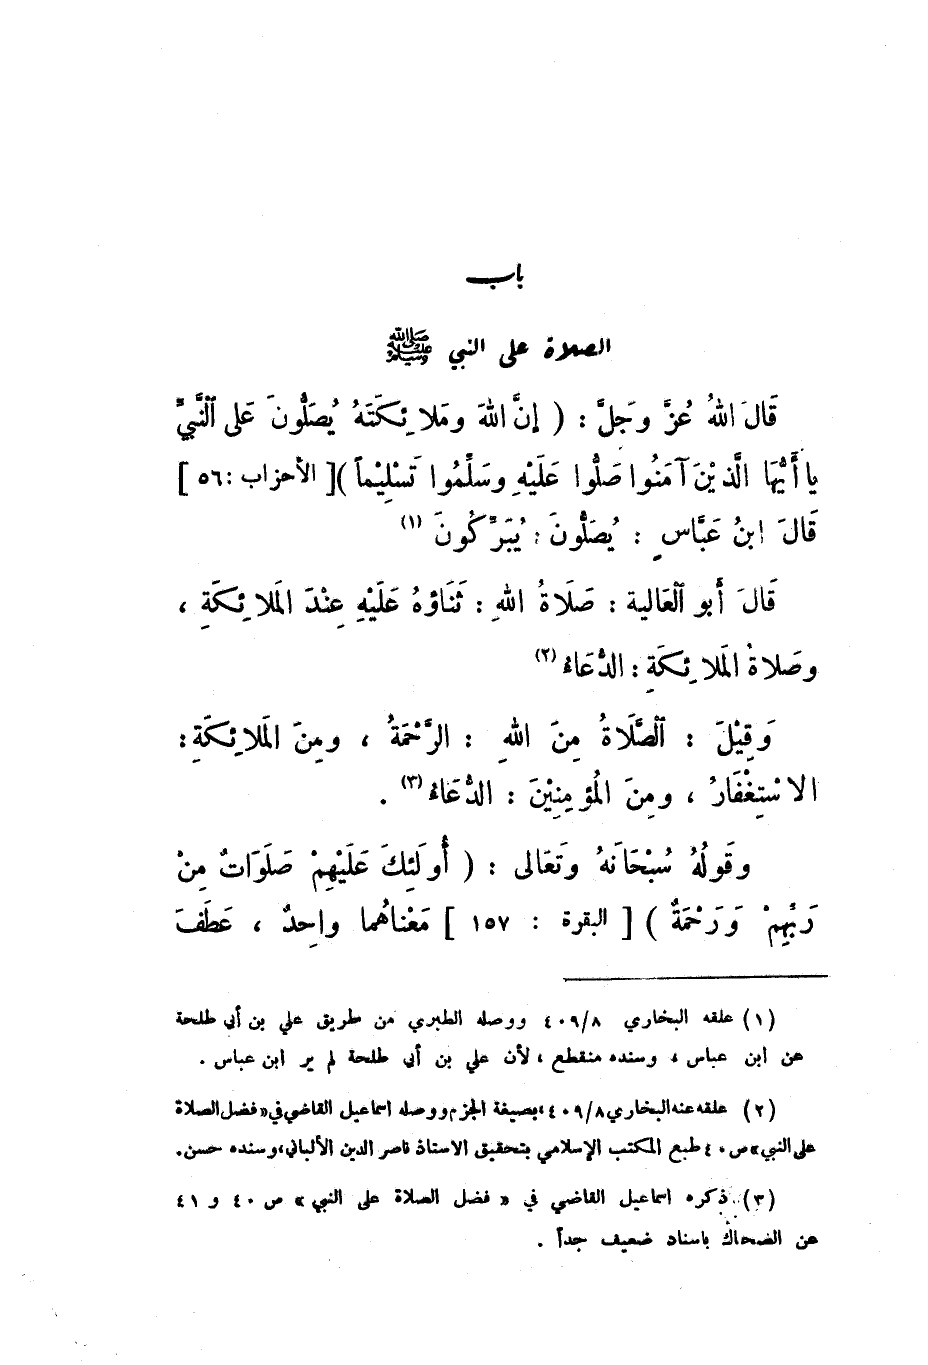 باب
الصلاة على النبي ﷺ
قَالَ اللهُ عُزَّ وجَلَّ : ( إنَّ اللهَ ومَلائِكَتَهُ يُصَلُّونَ عَلى ٱلنَّبِيِّ
يا أَيُّهَا الَّذيْنَ آمَنُوا صَلُّوا عَلَيْهِ وسَلِّمُوا تَسْلِيماً )[ الأحزاب :٥٦ ]
قَالَ ابنُ عَبَّاسٍ : يُصَلُّونَ : يُبَرِّكُونَ (١)
قَالَ أَبو ٱلعَالية : صَلَاةُ اللهِ : ثَنَاؤهُ عَلَيْهِ عِنْدَ المَلائِكَةِ ،
وصَلاةُ المَلائِكَةِ : الدُّعَاءُ (٢)
وَقِيْلَ : ٱلصَّلَاةُ مِنَ اللهِ : الرَّحْمَةُ ، ومِنَ المَلائِكَةِ :
الاسْتِغْفَارُ ، ومِنَ المُؤمِنِيْنَ : الدُّعَاءُ (٣) .
وقَولُهُ سُبْحَانَهُ وتَعَالى : ( أُولَئِكَ عَلَيْهِمْ صَلَوَاتٌ مِنْ
رَبِّهِمْ وَرَحْمَةٌ ) [ البقرة : ١٥٧ ] مَعْنَاهُما واحِدٌ ، عَطَفَ
(١) علقه البخاري ٤٠٩/٨ ووصله الطبري من طريق علي بن أبي طلحة
عن ابن عباس ، وسنده منقطع ، لأن علي بن أبي طلحة لم ير ابن عباس .
(٢) علقه عنه البخاري ٤٠٩/٨ ،بصيغة الجزم ووصله اسماعيل القاضي في « فضل الصلاة
على النبي » ص ٤٠ طبع المكتب الإسلامي بتحقيق الاستاذ ناصر الدين الألباني ، وسنده حسن.
(٣) ذكره اسماعيل القاضي في « فضل الصلاة على النبي » ص ٤٠ و ٤١
عن الضحاك باسناد ضعيف جداً .